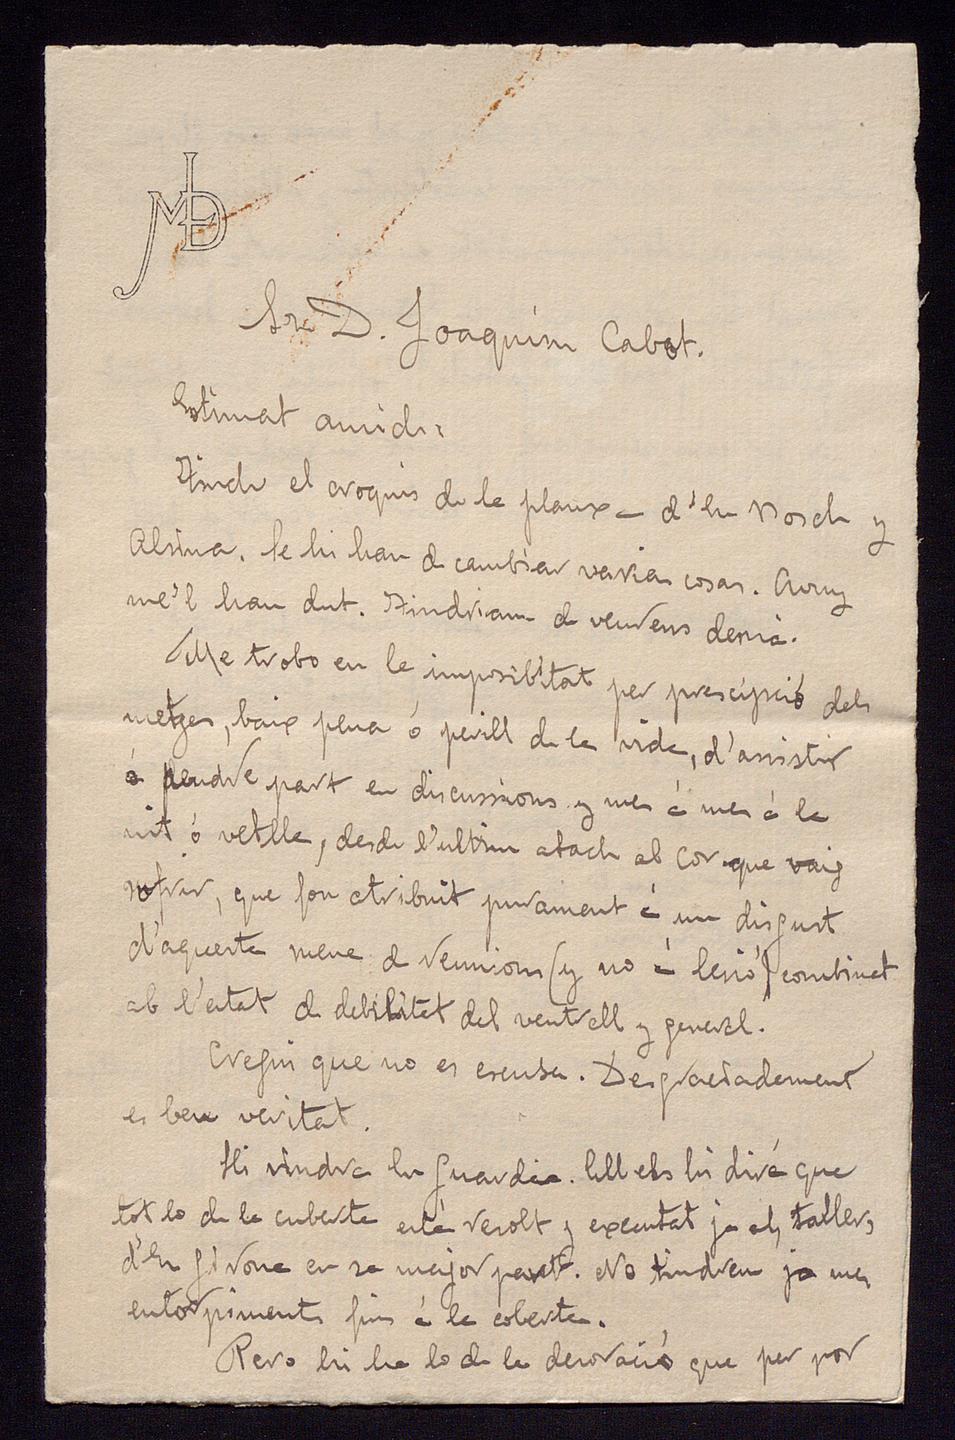 LMD
Sr. D. Joaquim Cabot.
Estimat amich:
Tinch el croquis de la planxa d'En Bosch y
Alsina. Se hi han de cambiar varias cosas. Avuy
me'l han dut. Tindriam de veurens demá.
Me trobo en la imposibitat per prescipció dels
metges, baix pena ó perill de la vida, d'assistir
á pendre part en discussions y mes á mes á la
nit ó vetlle, desde l'ultim atach al cor que vaig
sofrir, que fou atribuit purament á un disgust
d'aquesta mena de reunions (y no á lesió) combinat
ab l'estat de debilitat del ventrell y general.
Cregui que no es escusa. Desgraciadament
es ben veritat.
Hi vindra En Guardia. Ell els hi dirá que
tot lo de la cuberta está resolt y executat ja als tallers
d'En Girona en sa major part. No tindrem ja mes
entorpiments fins á la coberta.
Pero hi ha lo de la decoració que per por